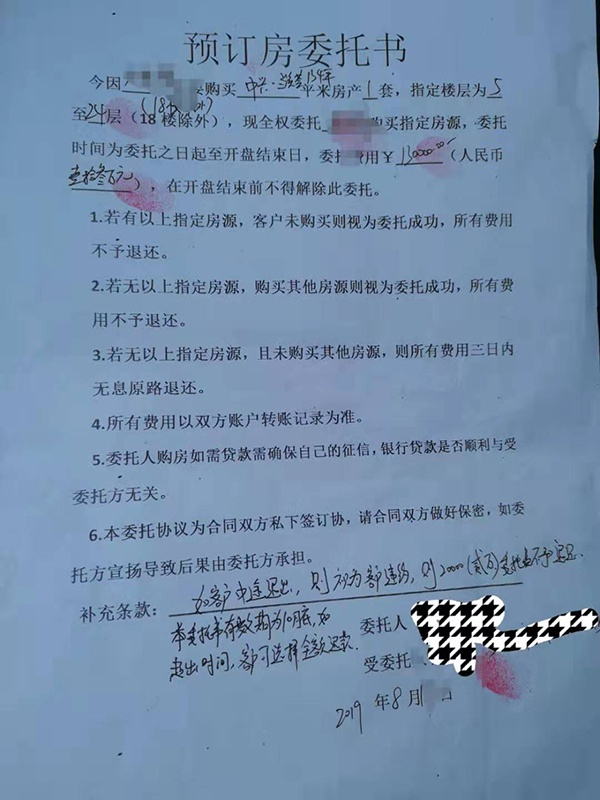 预订房委托书
今因 购买 中 平米房产1套，指定楼层为5
至24层（18楼除外），现全权委托 购买指定房源，委托
时间为委托之日起至开盘结束日，委 费用￥130000.00（人民币
壹拾叁万元），在开盘结束前不得解除此委托。
1.若有以上指定房源，客户未购买则视为委托成功，所有费用
不予退还。
2.若无以上指定房源，购买其他房源则视为委托成功，所有费
用不予退还。
3.若无以上指定房源，且未购买其他房源，则所有费用三日内
无息原路退还。
4.所有费用以双方账户转账记录为准。
5.委托人购房如需贷款需确保自己的征信，银行贷款是否顺利与受
委托方无关。
6.本委托协议为合同双方私下签订协，请合同双方做好保密，如委
托方宣扬导致后果由委托方承担。
补充条款：如客户中途退出，则视为客户违约，则20000（贰万） 不予退还.
本委托书有效期为10月底，如 委托人
超出时间，客户可选择全额退款. 受委托
2019 年 8 月 日